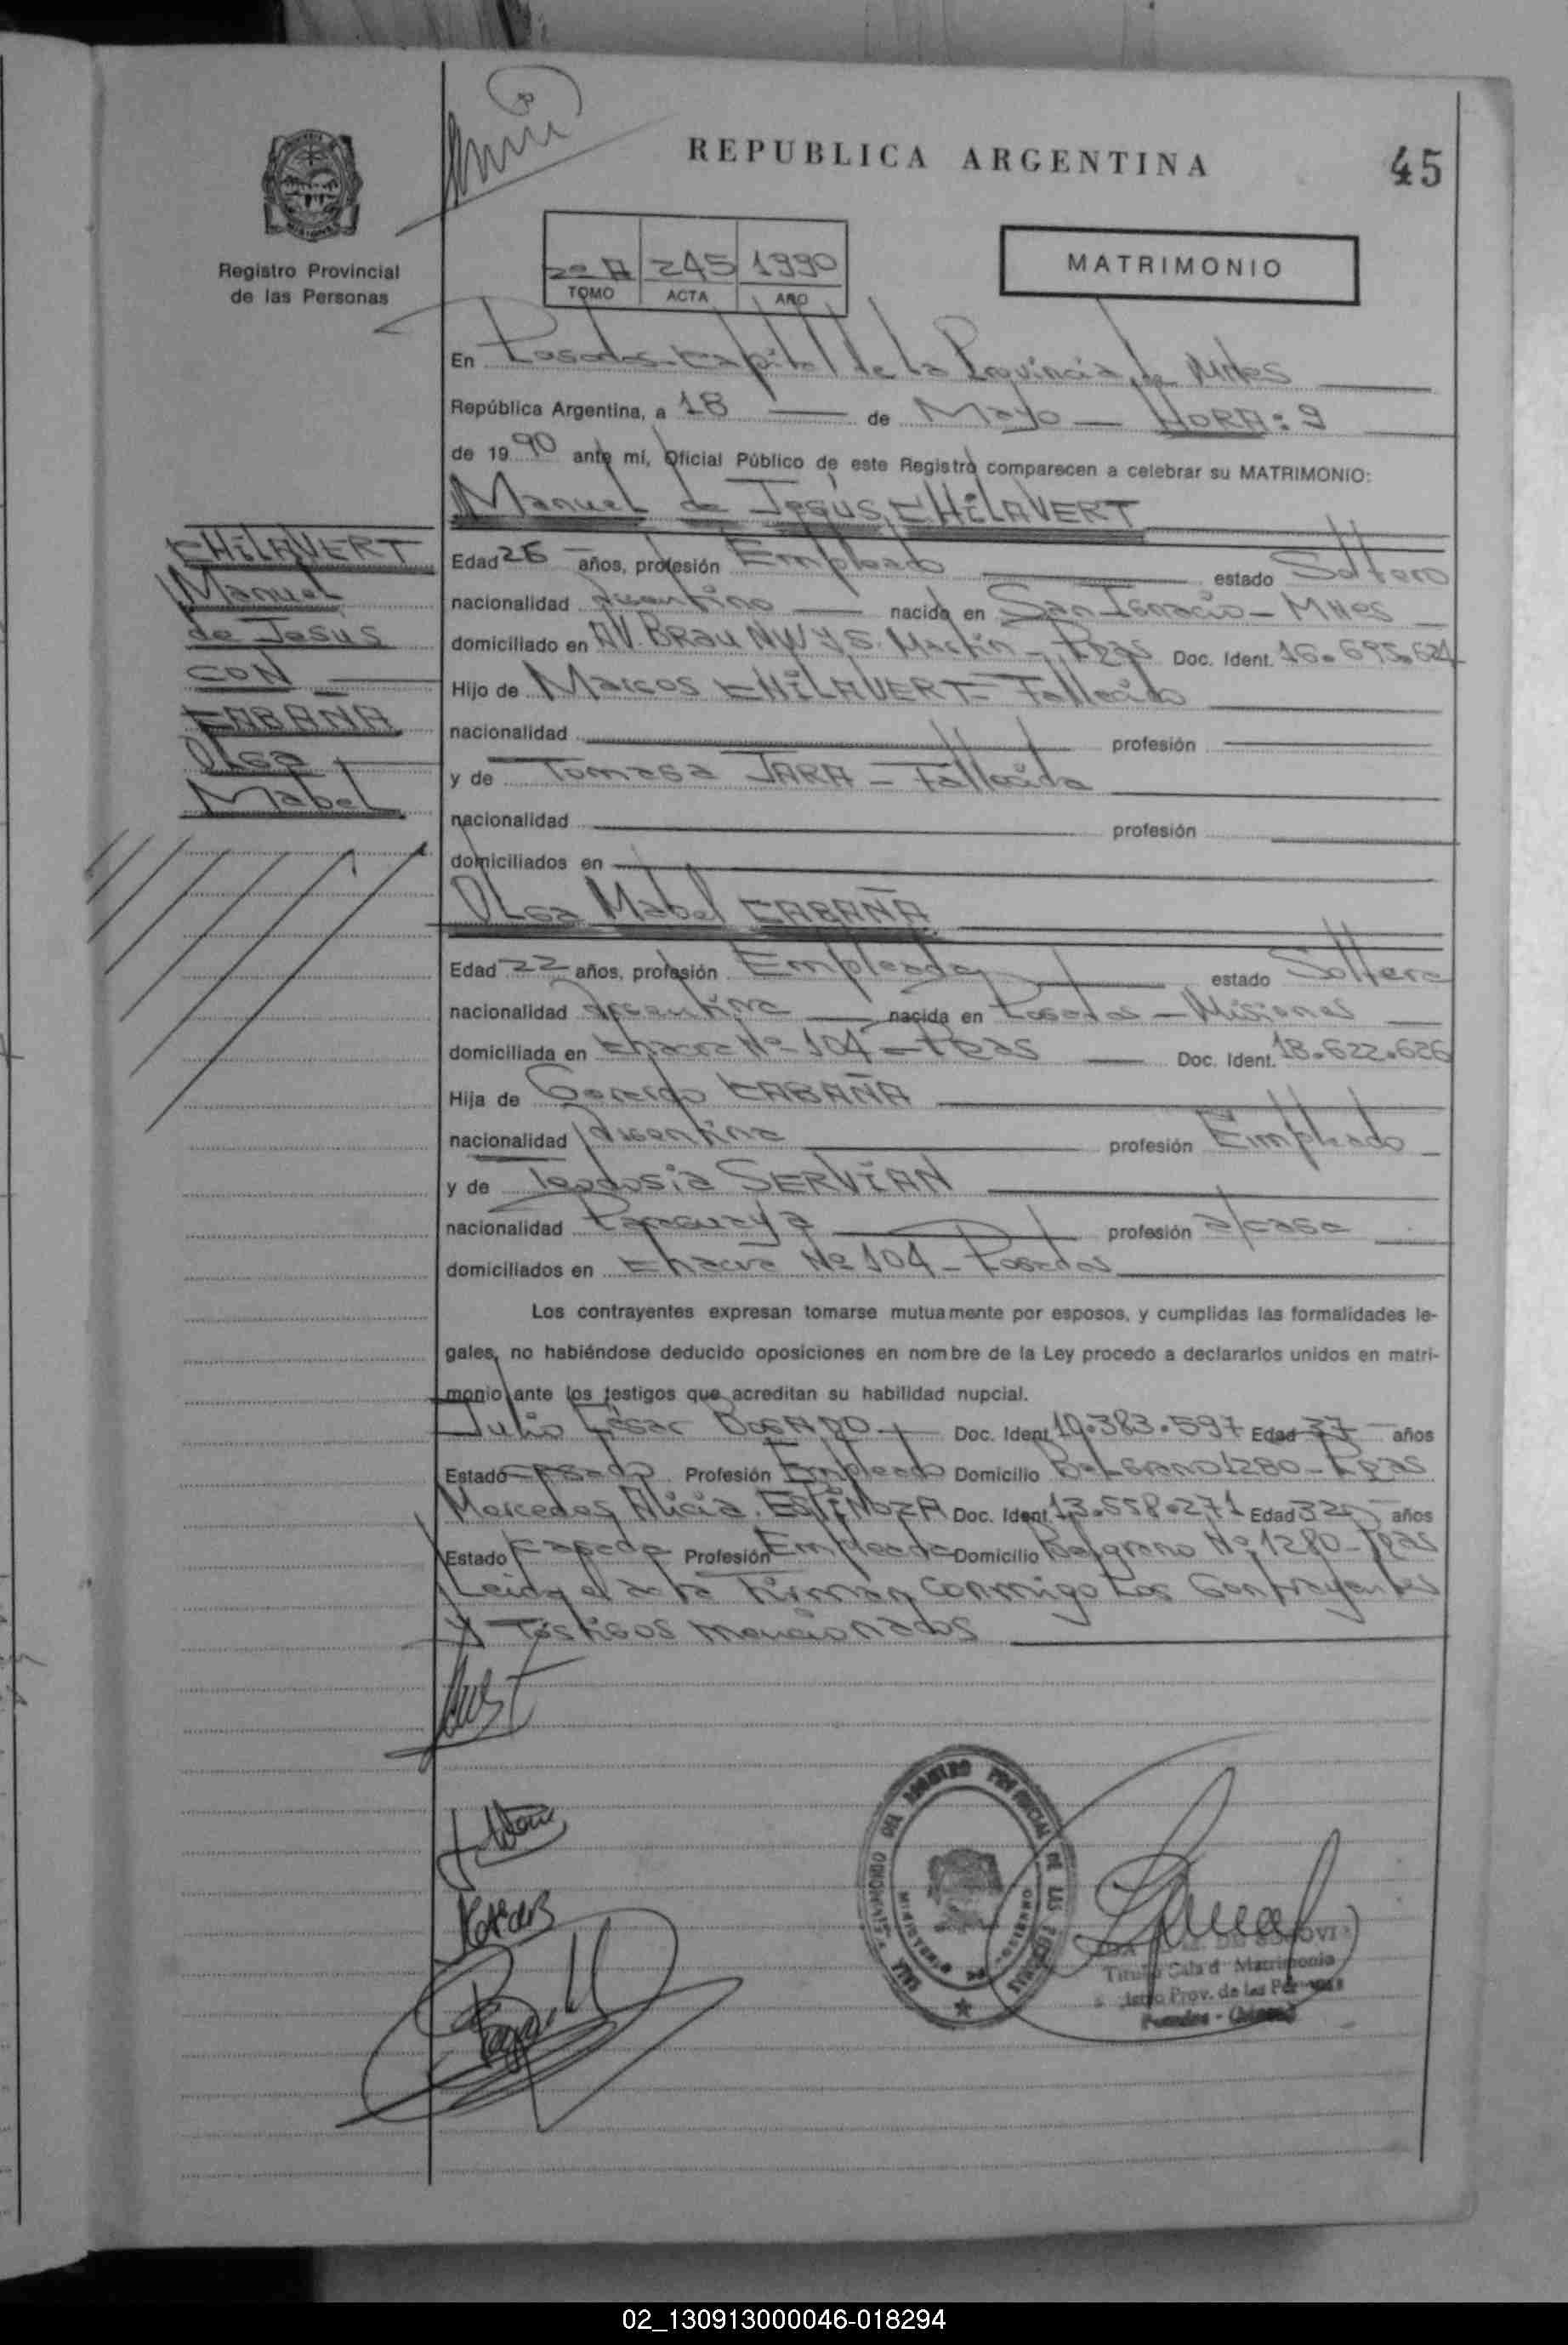 REPUBLICA ARGENTINA
45
Registro Provincial
de las Personas
2º A 245 1990
TOMO ACTA AÑO
MATRIMONIO
En Posadas Capital de la Provincia de Mnes
República Argentina, a 18 de Mayo HORA: 9
de 1990 ante mí, Oficial Público de este Registro comparecen a celebrar su MATRIMONIO:
Manuel de Jesús CHILAVERT
CHILAVERT
Manuel
de Jesús
CON
CABAÑA
Olga
Mabel
Edad 26 años, profesión Empleado estado Soltero
nacionalidad Argentino nacido en San Ignacio - Mnes
domiciliado en AV. Brau NW y S. Martín - Pdas Doc. Ident. 16.695.624
Hijo de Marcos CHILAVERT - Fallecido
nacionalidad profesión
y de Tomasa JARA - Fallecida
nacionalidad profesión
domiciliados en
Olga Mabel CABAÑA
Edad 22 años, profesión Empleada estado Soltera
nacionalidad Argentina nacida en Posadas - Misiones
domiciliada en Chacra Nº 104 - Pdas Doc. Ident. 18.622.626
Hija de CABAÑA
nacionalidad Argentina profesión Empleado
y de Teodosia SERVIAN
nacionalidad Paraguaya profesión a/casa
domiciliados en Chacra Nº 104 - Posadas
Los contrayentes expresan tomarse mutuamente por esposos, y cumplidas las formalidades le-
gales, no habiéndose deducido oposiciones en nombre de la Ley procedo a declararlos unidos en matri-
monio ante los testigos que acreditan su habilidad nupcial.
Julio César BOGADO Doc. Ident. 10.383.597 Edad 37 años
Estado Casado Profesión Empleado Domicilio Belgrano 1280 - Pdas
Mercedes Alicia ESPINOZA Doc. Ident. 13.558.271 Edad 32 años
Estado Casada Profesión Empleada Domicilio Belgrano Nº 1280 - Pdas
Leida el acta firman conmigo los Contrayentes
y Testigos mencionados
DEL REGISTRO PROVINCIAL DE LAS PERSONAS
MINISTERIO DE GOBIERNO
Titular Sala d Matrimonio
Prov. de las Personas
Posadas - (Mnes)
02_130913000046-018294